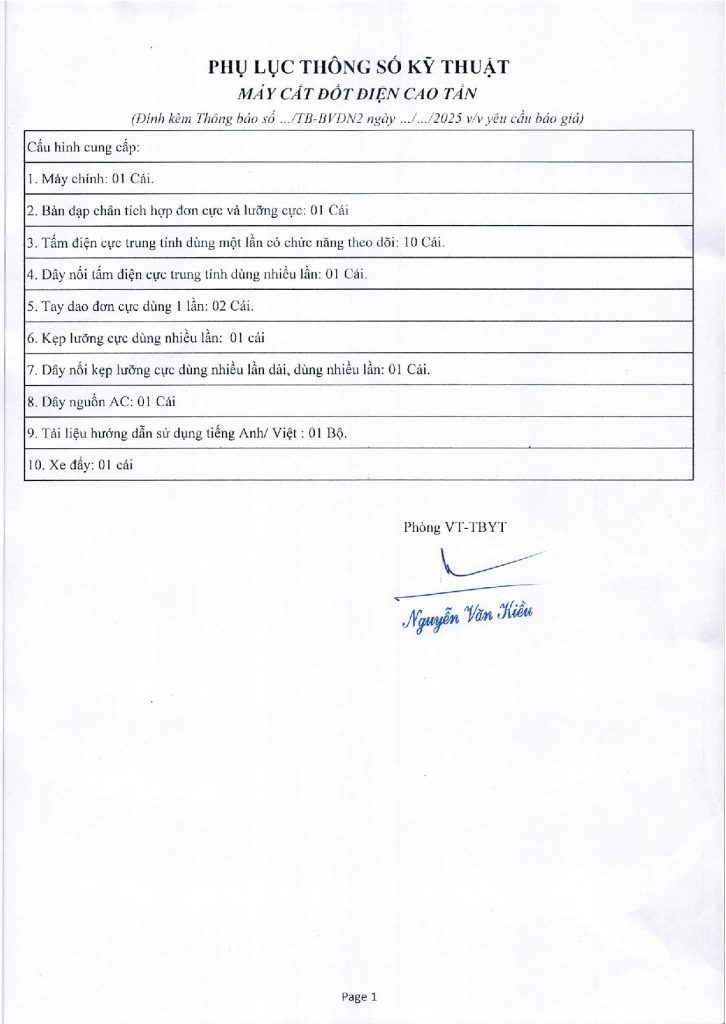 PHỤ LỤC THÔNG SỐ KỸ THUẬT
MÁY CẮT ĐỐT ĐIỆN CAO TẦN
(Đính kèm Thông báo số .../TB-BVĐN2 ngày .../.../2025 v/v yêu cầu báo giá)
Cấu hình cung cấp:
1. Máy chính: 01 Cái.
2. Bàn đạp chân tích hợp đơn cực và lưỡng cực: 01 Cái
3. Tấm điện cực trung tính dùng một lần có chức năng theo dõi: 10 Cái.
4. Dây nối tấm điện cực trung tính dùng nhiều lần: 01 Cái.
5. Tay dao đơn cực dùng 1 lần: 02 Cái.
6. Kẹp lưỡng cực dùng nhiều lần: 01 cái
7. Dây nối kẹp lưỡng cực dùng nhiều lần dài, dùng nhiều lần: 01 Cái.
8. Dây nguồn AC: 01 Cái
9. Tài liệu hướng dẫn sử dụng tiếng Anh/ Việt : 01 Bộ.
10. Xe đẩy: 01 cái
Phòng VT-TBYT
Nguyễn Văn Kiều
Page 1